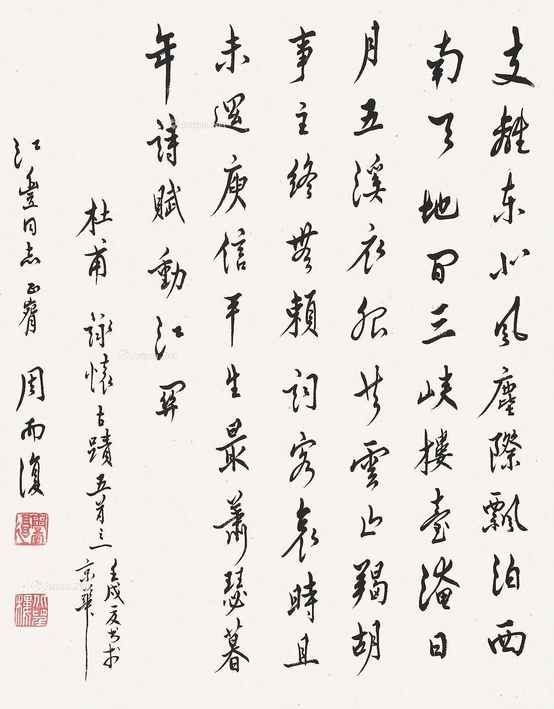 支離東北風塵際飄泊西
南天地間三峽樓臺淹日
月五溪衣服共雲山羯胡
事主終無賴詞客哀時且
未還庾信平生最蕭瑟暮
年詩賦動江關
杜甫詠懷古蹟五首之一
壬戌夏書於
京華
江豐同志正
周而復
Artron.Net